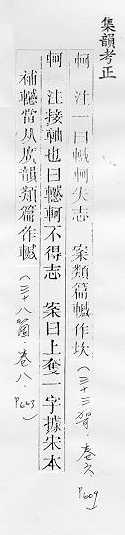 集韻考正
軻　注一曰轗軻失志　案類篇轗作坎（三十三哿．卷六 P609）
軻　注接軸也曰轗軻不得志　案日上奪一字據宋本
補轗當从宋韻類篇作轗（三十八箇．卷八．P643）